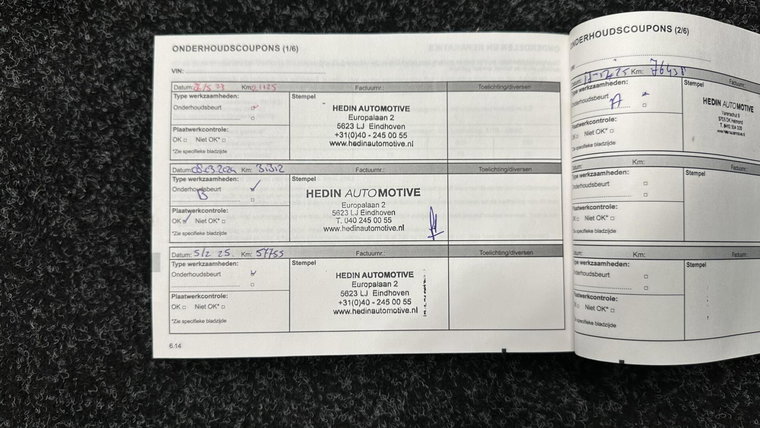 ONDERHOUDSCOUPONS (1/6)
VIN:
Datum: Km: Factuurnr.: Toelichting/diversen
Type werkzaamheden: Stempel
Onderhoudsbeurt
HEDIN AUTOMOTIVE
Europalaan 2
5623 LJ Eindhoven
+31(0)40 - 245 00 55
www.hedinautomotive.nl
Plaatwerkcontrole:
OK Niet OK*
*Zie specifieke bladzijde
Datum: 08-03-2024 Km: 31312 Factuurnr.: Toelichting/diversen
Type werkzaamheden: Stempel
Onderhoudsbeurt
B
HEDIN AUTOMOTIVE
Europalaan 2
5623 LJ Eindhoven
T. 040 245 00 55
www.hedinautomotive.nl
Plaatwerkcontrole:
OK Niet OK*
*Zie specifieke bladzijde
Datum: 5/2 25. Km: 57755 Factuurnr.: Toelichting/diversen
Type werkzaamheden: Stempel
Onderhoudsbeurt
HEDIN AUTOMOTIVE
Europalaan 2
5623 LJ Eindhoven
+31(0)40 - 245 00 55
www.hedinautomotive.nl
Plaatwerkcontrole:
OK Niet OK*
*Zie specifieke bladzijde
6.14
ONDERHOUDSCOUPONS (2/6)
Km:
Type werkzaamheden: Stempel
Onderhoudsbeurt
A
HEDIN AUTOMOTIVE
Plaatwerkcontrole:
OK Niet OK*
*Zie specifieke bladzijde
Km: Factuurnr.
Type werkzaamheden: Stempel
Onderhoudsbeurt
Plaatwerkcontrole:
OK Niet OK*
*Zie specifieke bladzijde
Datum: Km: Factuurnr.
Type werkzaamheden: Stempel
Onderhoudsbeurt
Plaatwerkcontrole:
OK Niet OK*
*Zie specifieke bladzijde